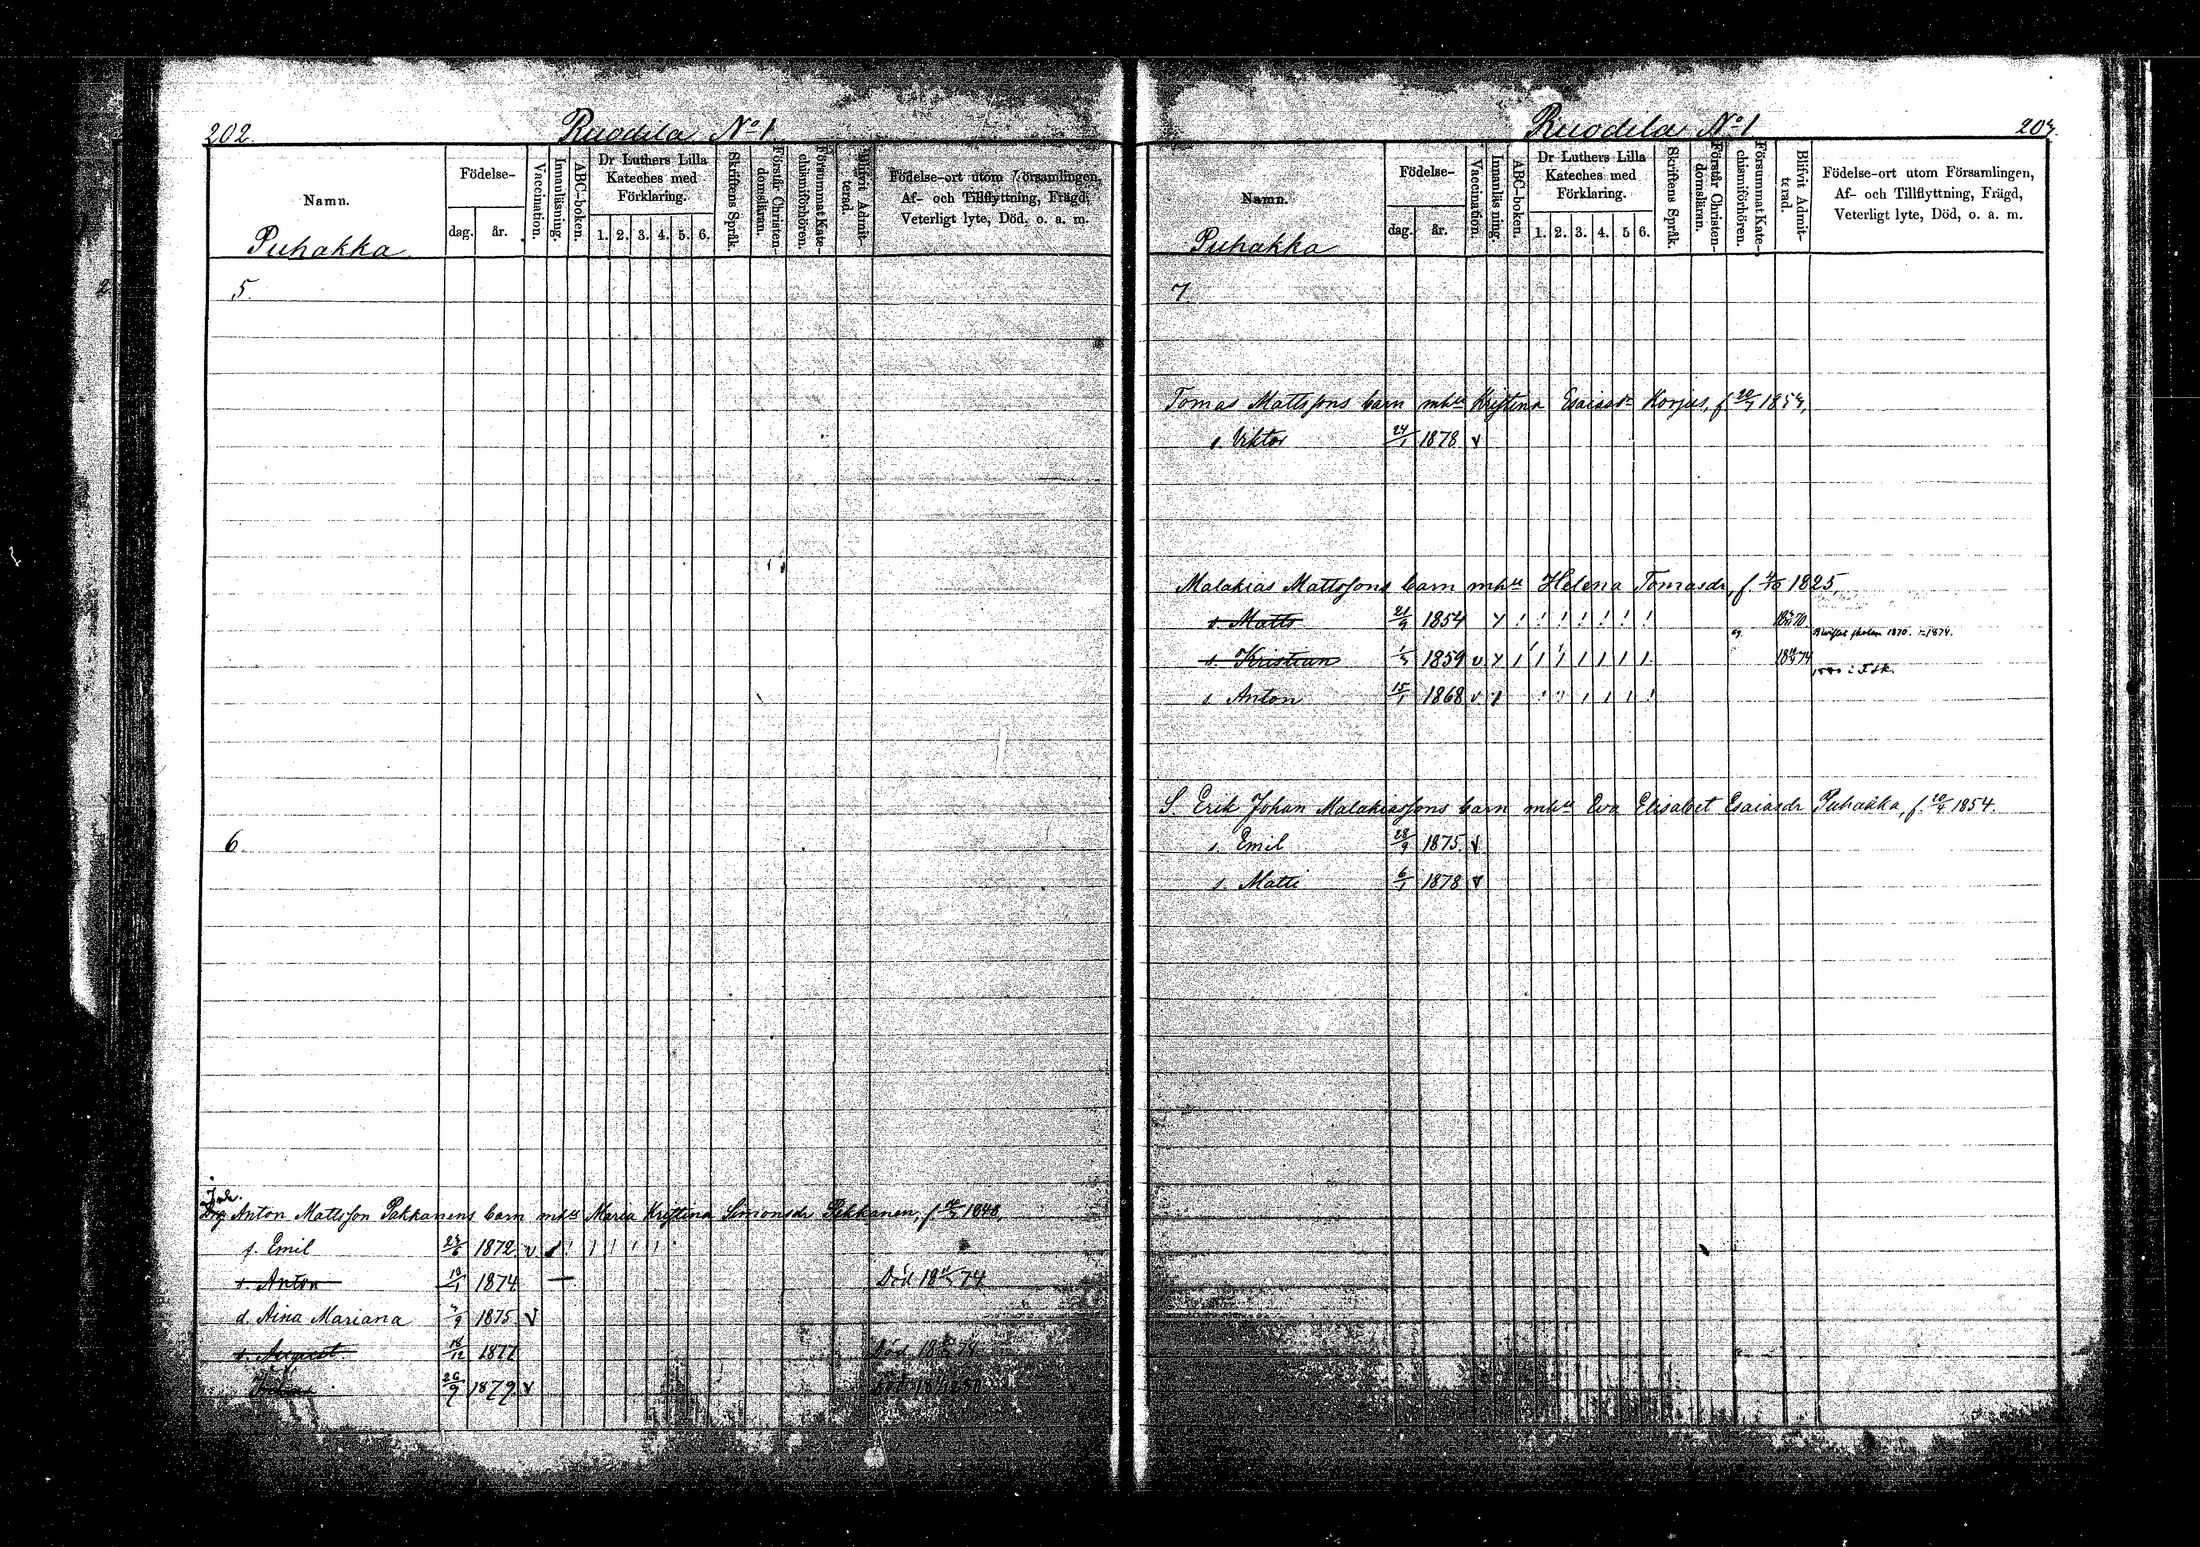 202. Ruodila No 1
Namn. Födelse- dag. år. Vaccination. Innanläsning. ABC-boken. Dr Luthers Lilla Kateches med Förklaring. 1. 2. 3. 4. 5. 6. Skriftens Språk. Förstår Christendomsläran. Försummat Katechismiförhören. Blifvit Admitterad. Födelse-ort utom Församlingen, Af- och Tillflyttning, Frägd, Veterligt lyte, Död, o. a. m.
Puhakka
5.
6.
Anton Mattsson Pakkanens barn Maria Kristina Simonsdr Pekkanen, f.
s. Emil 1872 v
s. Anton 19/1 1874 — Död
d. Aina Mariana 1875 v
s. August 1877 Död
26/9 1879 v
Ruodila No 1 203.
Namn. Födelse- dag. år. Vaccination. Innanläsning. ABC-boken. Dr Luthers Lilla Kateches med Förklaring. 1. 2. 3. 4. 5 6. Skriftens Språk. Förstår Christendomsläran. Försummat Katechismiförhören. Blifvit Admitterad. Födelse-ort utom Församlingen, Af- och Tillflyttning, Frägd, Veterligt lyte, Död, o. a. m.
Puhakka
7
Tomas Mattssons barn Kristina Korjus, f.
s. Viktor 24/1 1878 v
Malakias Mattssons barn Helena Tomasdr, f. 1825,
s. Matts 21/9 1854
s. Kristian 1859 v
s. Anton 15/1 1868 v
S. Erik Johan Malakiassons barn Eva Elisabet Esaiasdr Puhakka, f. 1854.
s. Emil 28/9 1875 v
s. Matti 6/1 1878 v